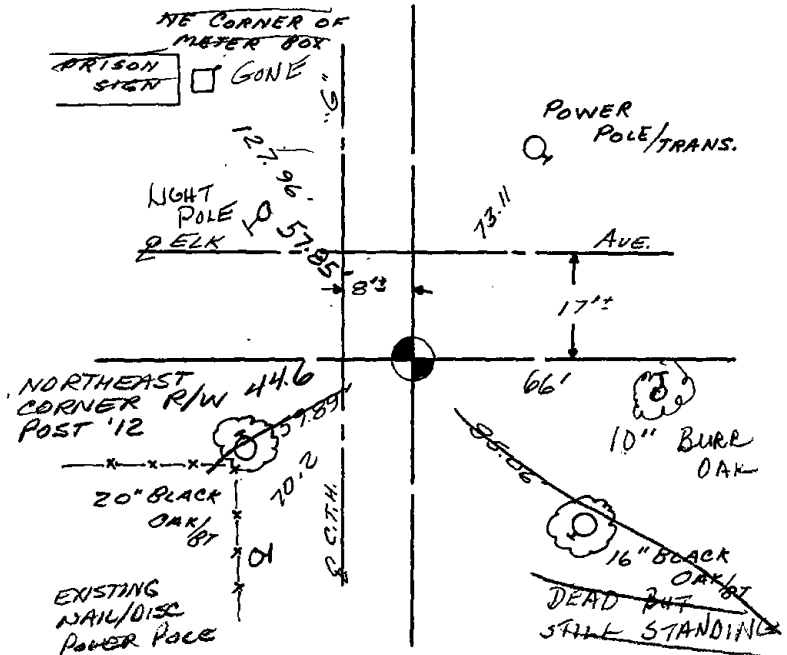 NE CORNER OF
METER BOX
PRISON
SIGN
GONE
"G"
127.96'
POWER
POLE/TRANS.
LIGHT
POLE
57.85'
73.11
℄ ELK
AVE.
8'±
17'±
NORTHEAST
CORNER R/W
POST '12
44.6
66'
59.89'
10" BURR
OAK
70.2
95.06'
20" BLACK
OAK/BT
℄ C.T.H.
16" BLACK
OAK/BT
DEAD BUT
STILL STANDING
EXISTING
NAIL/DISC
POWER POLE